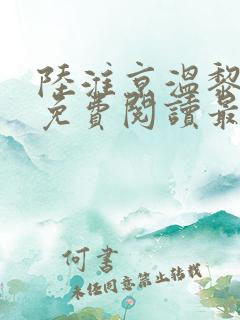 陸淮京溫黎
免費閱讀最
何書
未經同意禁止轉載